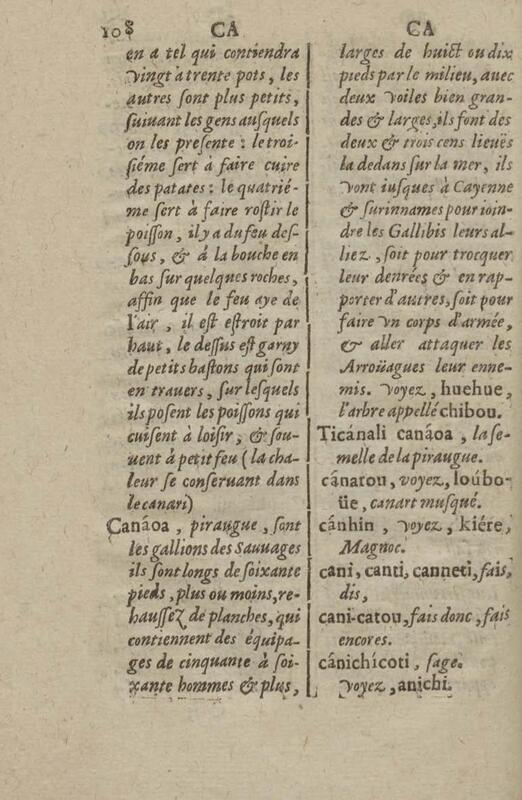 108 CA CA
en a tel qui contiendra
vingt à trente pots, les
autres ſont plus petits,
ſuiuant les gens auſquels
on les preſente : le troi-
ſiéme ſert à faire cuire
des patates : le quatrié-
me ſert à faire roſtir le
poiſſon, il y a du feu deſ-
ſous, & à la bouche en
bas ſur quelques roches,
affin que le feu aye de
l'air, il eſt eſtroit par
haut, le deſſus eſt garny
de petits baſtons qui ſont
en trauers, ſur leſquels
ils poſent les poiſſons qui
cuiſent à loiſir, & ſou-
uent à petit feu (la cha-
leur ſe conſeruant dans
le canari)
Canáoa, piraugue, ſont
les gallions des Sauuages
ils ſont longs de ſoixante
pieds, plus ou moins, re-
hauſſez de planches, qui
contiennent des équipa-
ges de cinquante à ſoi-
xante hommes & plus,
larges de huict ou dix
pieds par le milieu, auec
deux voiles bien gran-
des & larges, ils font des
deux & trois cens lieuës
la dedans ſur la mer, ils
vont iuſques à Cayenne
& ſurinnames pour ioin-
dre les Gallibis leurs al-
liez, ſoit pour trocquer
leur denrées & en rap-
porter d'autres, ſoit pour
faire vn corps d'armée,
& aller attaquer les
Arroüagues leur enne-
mis. voyez, huehue,
l'arbre appellé chibou.
Ticánali canáoa, la ſe-
melle de la piraugue.
cánarou, voyez, loúbo-
üe, canart muſqué.
cánhin, voyez, kiére,
Magnoc.
cani, canti, canneti, fais,
dis,
cani-catou, fais donc, fais
encores.
cánichícoti, ſage.
voyez, anichi.